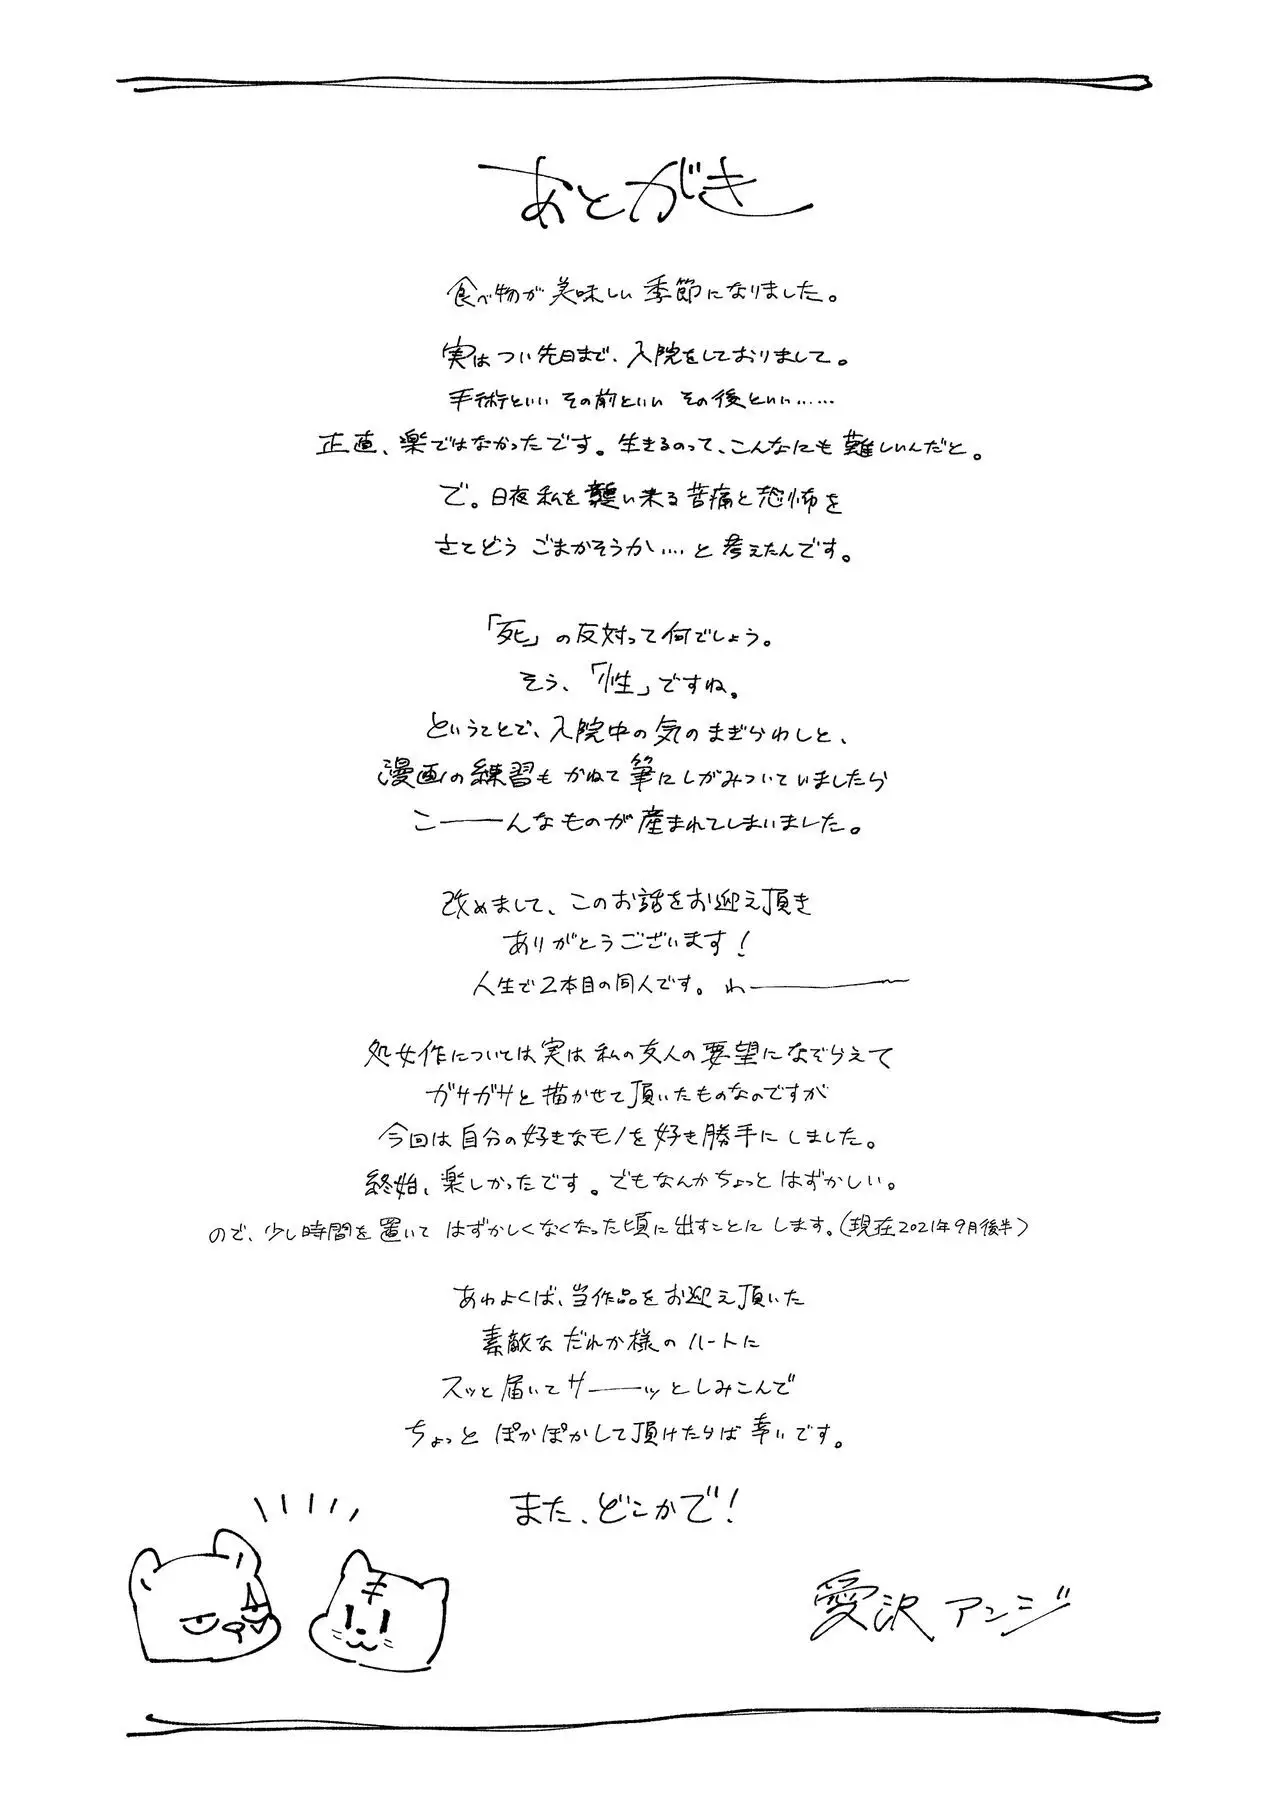 あとがき
食べ物が美味しい季節になりました。
実はつい先日まで、入院をしておりまして。
手術といい その前といい その後といい……
正直、楽ではなかったです。生きるのって、こんなにも難しいんだと。
で。日夜私を襲い来る苦痛と恐怖を
さてどう ごまかそうか…と考えたんです。
「死」の反対って何でしょう。
そう、「性」ですね。
ということで、入院中の気のまぎらわしと、
漫画の練習もかねて筆にしがみついていましたら
こ――んなものが産まれてしまいました。
改めまして、このお話をお迎え頂き
ありがとうございます！
人生で2本目の同人です。わ――――
処女作については実は私の友人の要望になぞらえて
ガサガサと描かせて頂いたものなのですが
今回は自分の好きなモノを好き勝手にしました。
終始、楽しかったです。でもなんかちょっとはずかしい。
ので、少し時間を置いて はずかしくなくなった頃に出すことにします。（現在2021年9月後半）
あわよくば、当作品をお迎え頂いた
素敵なだれか様のハートに
スッと届いてサ――ッとしみこんで
ちょっと ぽかぽかして頂けたらば幸いです。
また、どこかで！
愛沢アンジ